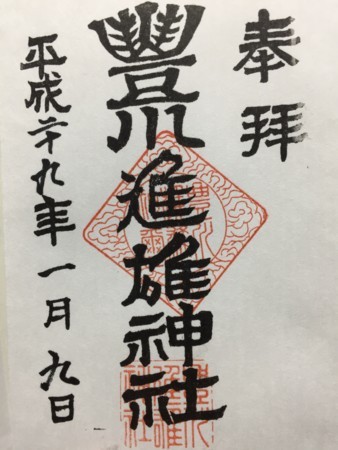 奉拝
豐川進雄神社
平成二十九年一月九日